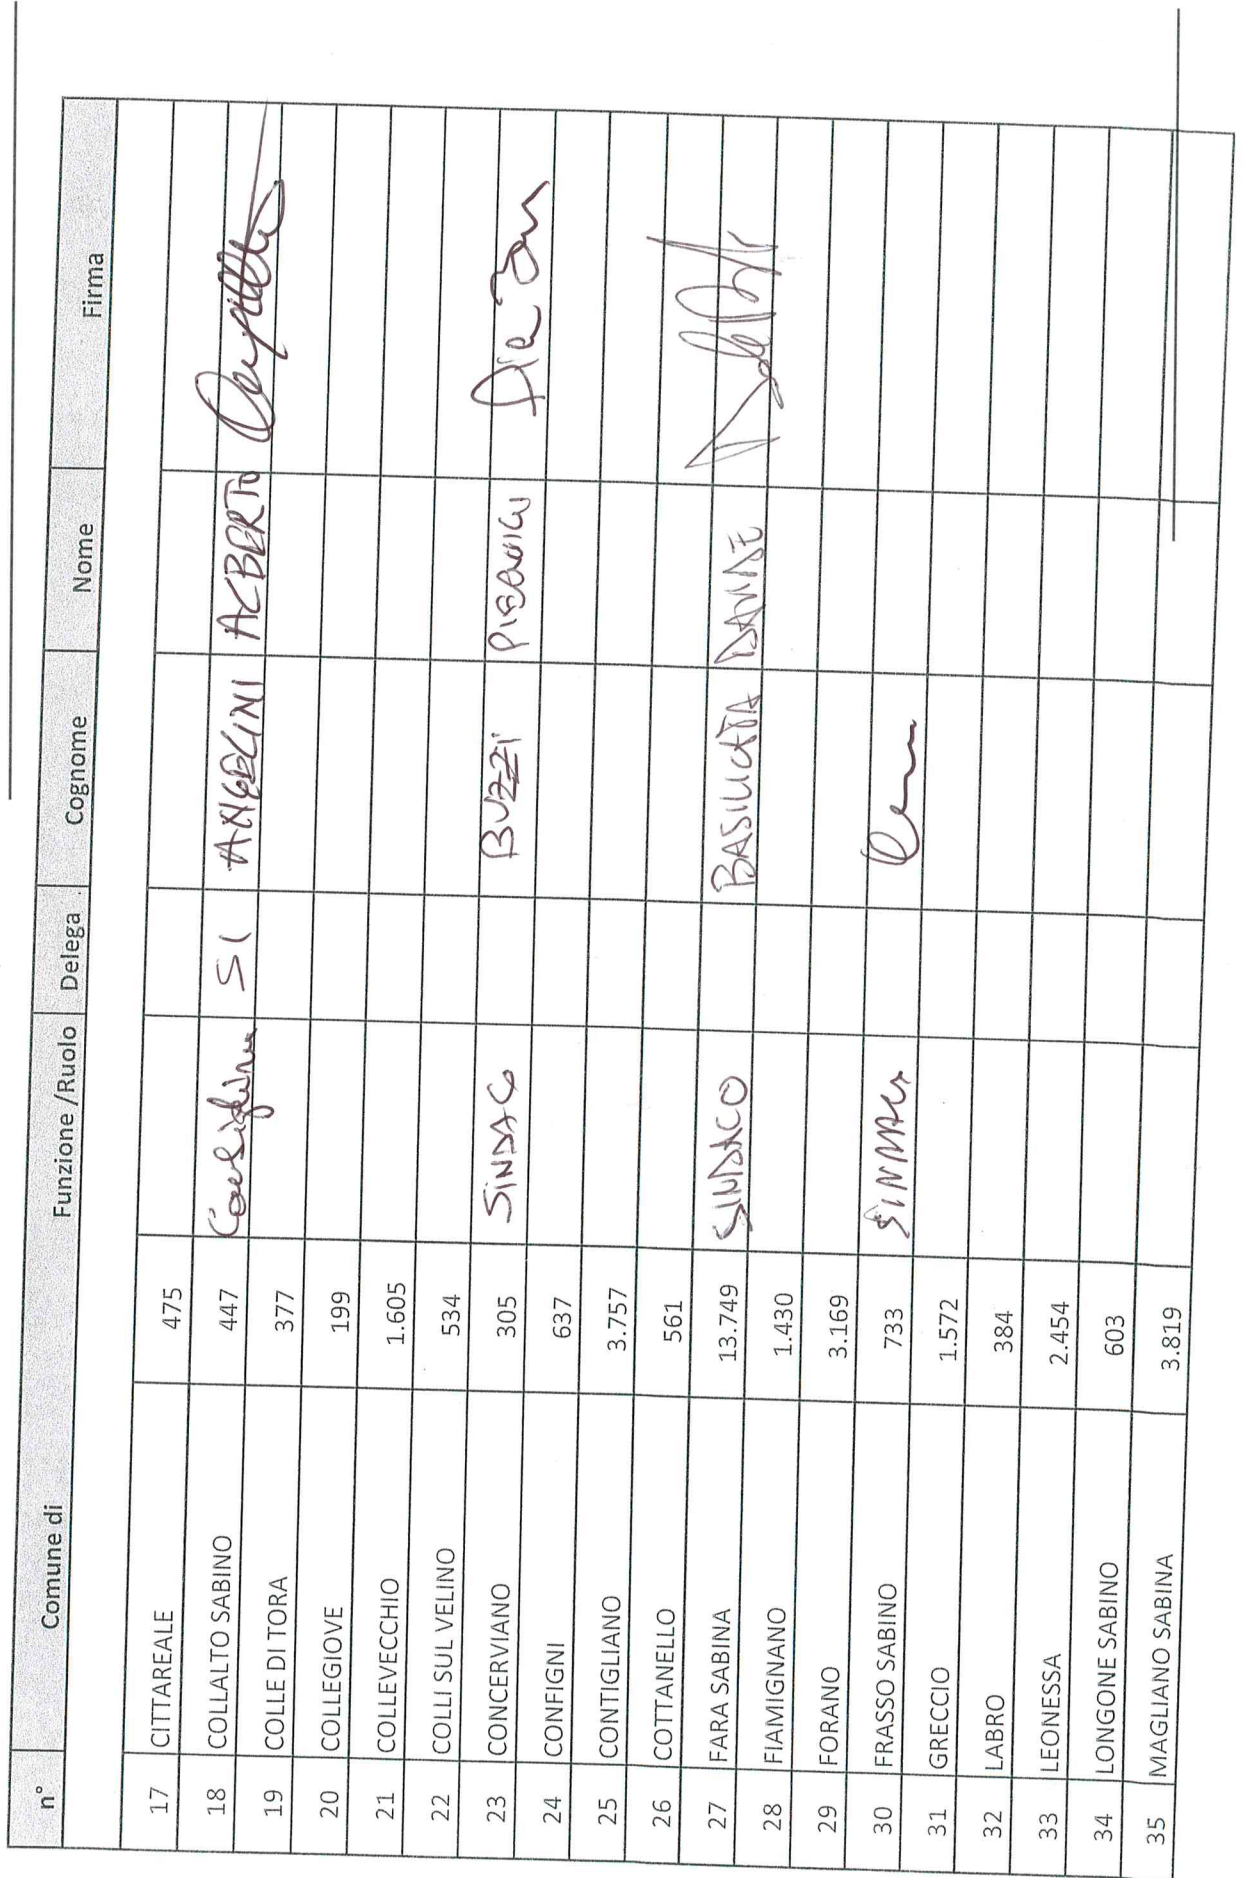 n° Comune di Funzione /Ruolo Delega Cognome Nome Firma
17 CITTAREALE 475
18 COLLALTO SABINO 447 SI ANGELINI ALBERTO
19 COLLE DI TORA 377
20 COLLEGIOVE 199
21 COLLEVECCHIO 1.605
22 COLLI SUL VELINO 534
23 CONCERVIANO 305 SINDACO BUZZI
24 CONFIGNI 637
25 CONTIGLIANO 3.757
26 COTTANELLO 561
27 FARA SABINA 13.749 SINDACO BASILICATA DAVIDE
28 FIAMIGNANO 1.430
29 FORANO 3.169
30 FRASSO SABINO 733 SINDACO
31 GRECCIO 1.572
32 LABRO 384
33 LEONESSA 2.454
34 LONGONE SABINO 603
35 MAGLIANO SABINA 3.819